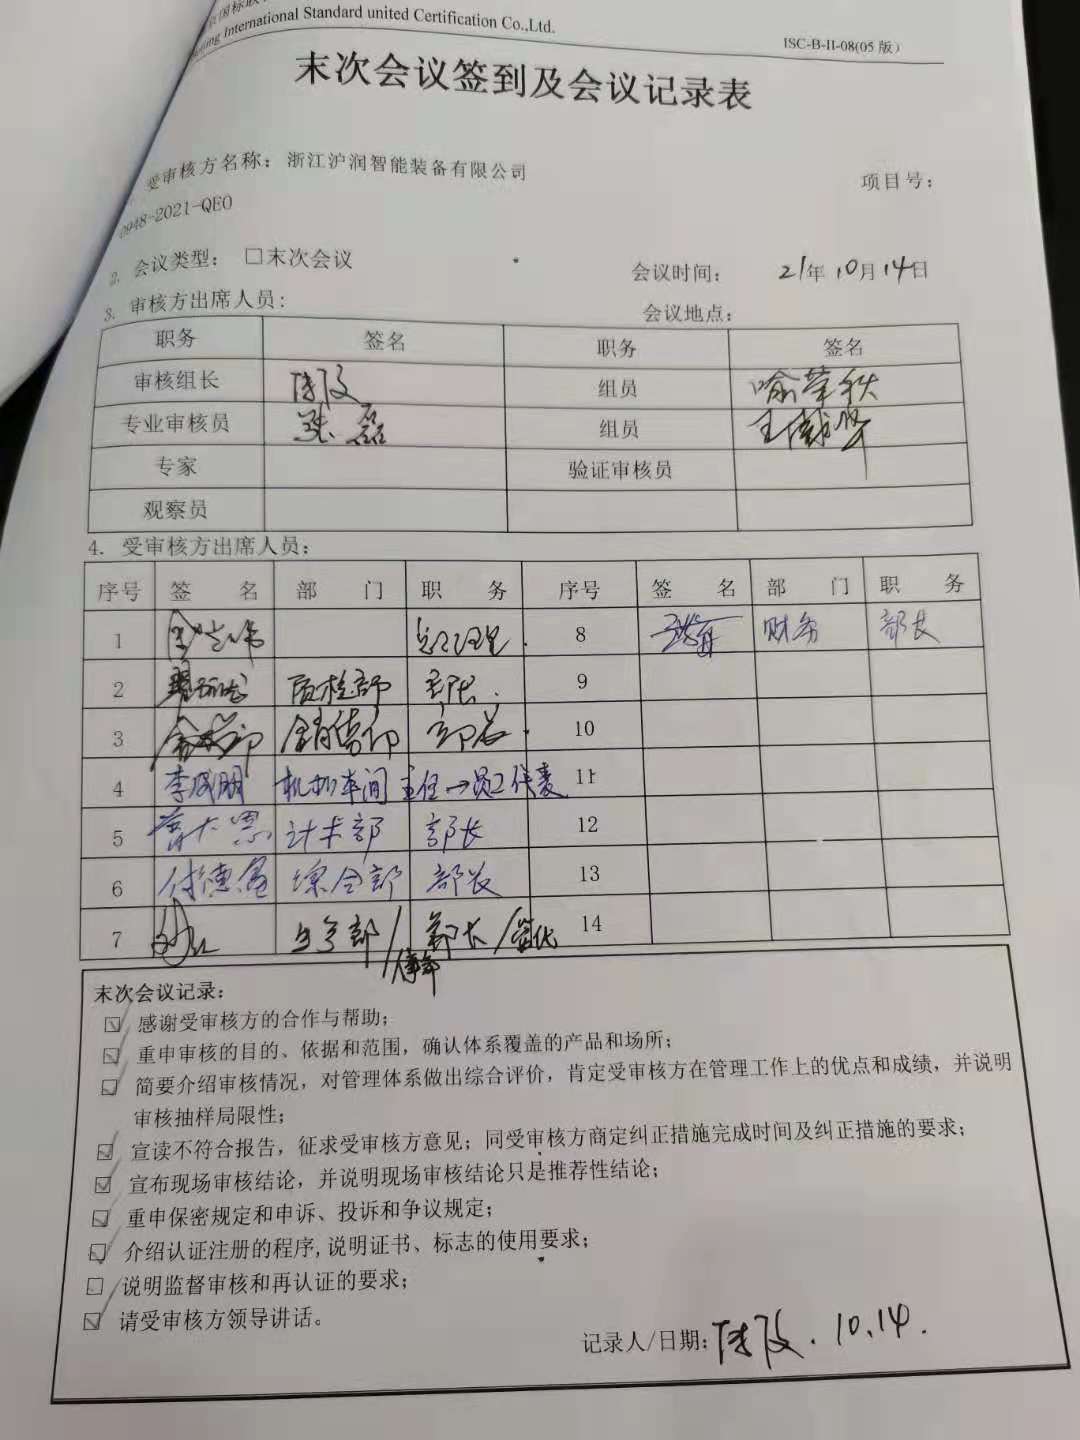 International Standard united Certification Co.,Ltd.
ISC-B-II-08(05 版)
末次会议签到及会议记录表
受审核方名称：浙江沪润智能装备有限公司 项目号：
0948-2021-QEO
2. 会议类型：□末次会议 会议时间： 21年 10月 14日
3. 审核方出席人员： 会议地点：
职务 签名 职务 签名
审核组长 组员 喻荣秋
专业审核员 组员
专家 验证审核员
观察员
4. 受审核方出席人员：
序号 签 名 部 门 职 务 序号 签 名 部 门 职 务
1 总经理 8 财务 部长
2 质检部 部长 9
3 销售部 部长 10
4 李成明 机加车间 主任→员工代表 11
5 部长 12
6 付德盈 综合部 部长 13
7 生产部/ 部长/管代 14
末次会议记录：
☑ 感谢受审核方的合作与帮助；
☑ 重申审核的目的、依据和范围，确认体系覆盖的产品和场所；
☑ 简要介绍审核情况，对管理体系做出综合评价，肯定受审核方在管理工作上的优点和成绩，并说明
审核抽样局限性；
☑ 宣读不符合报告，征求受审核方意见；同受审核方商定纠正措施完成时间及纠正措施的要求；
☑ 宣布现场审核结论，并说明现场审核结论只是推荐性结论；
☑ 重申保密规定和申诉、投诉和争议规定；
☑ 介绍认证注册的程序,说明证书、标志的使用要求；
□ 说明监督审核和再认证的要求；
☑ 请受审核方领导讲话。
记录人/日期： 10.14.